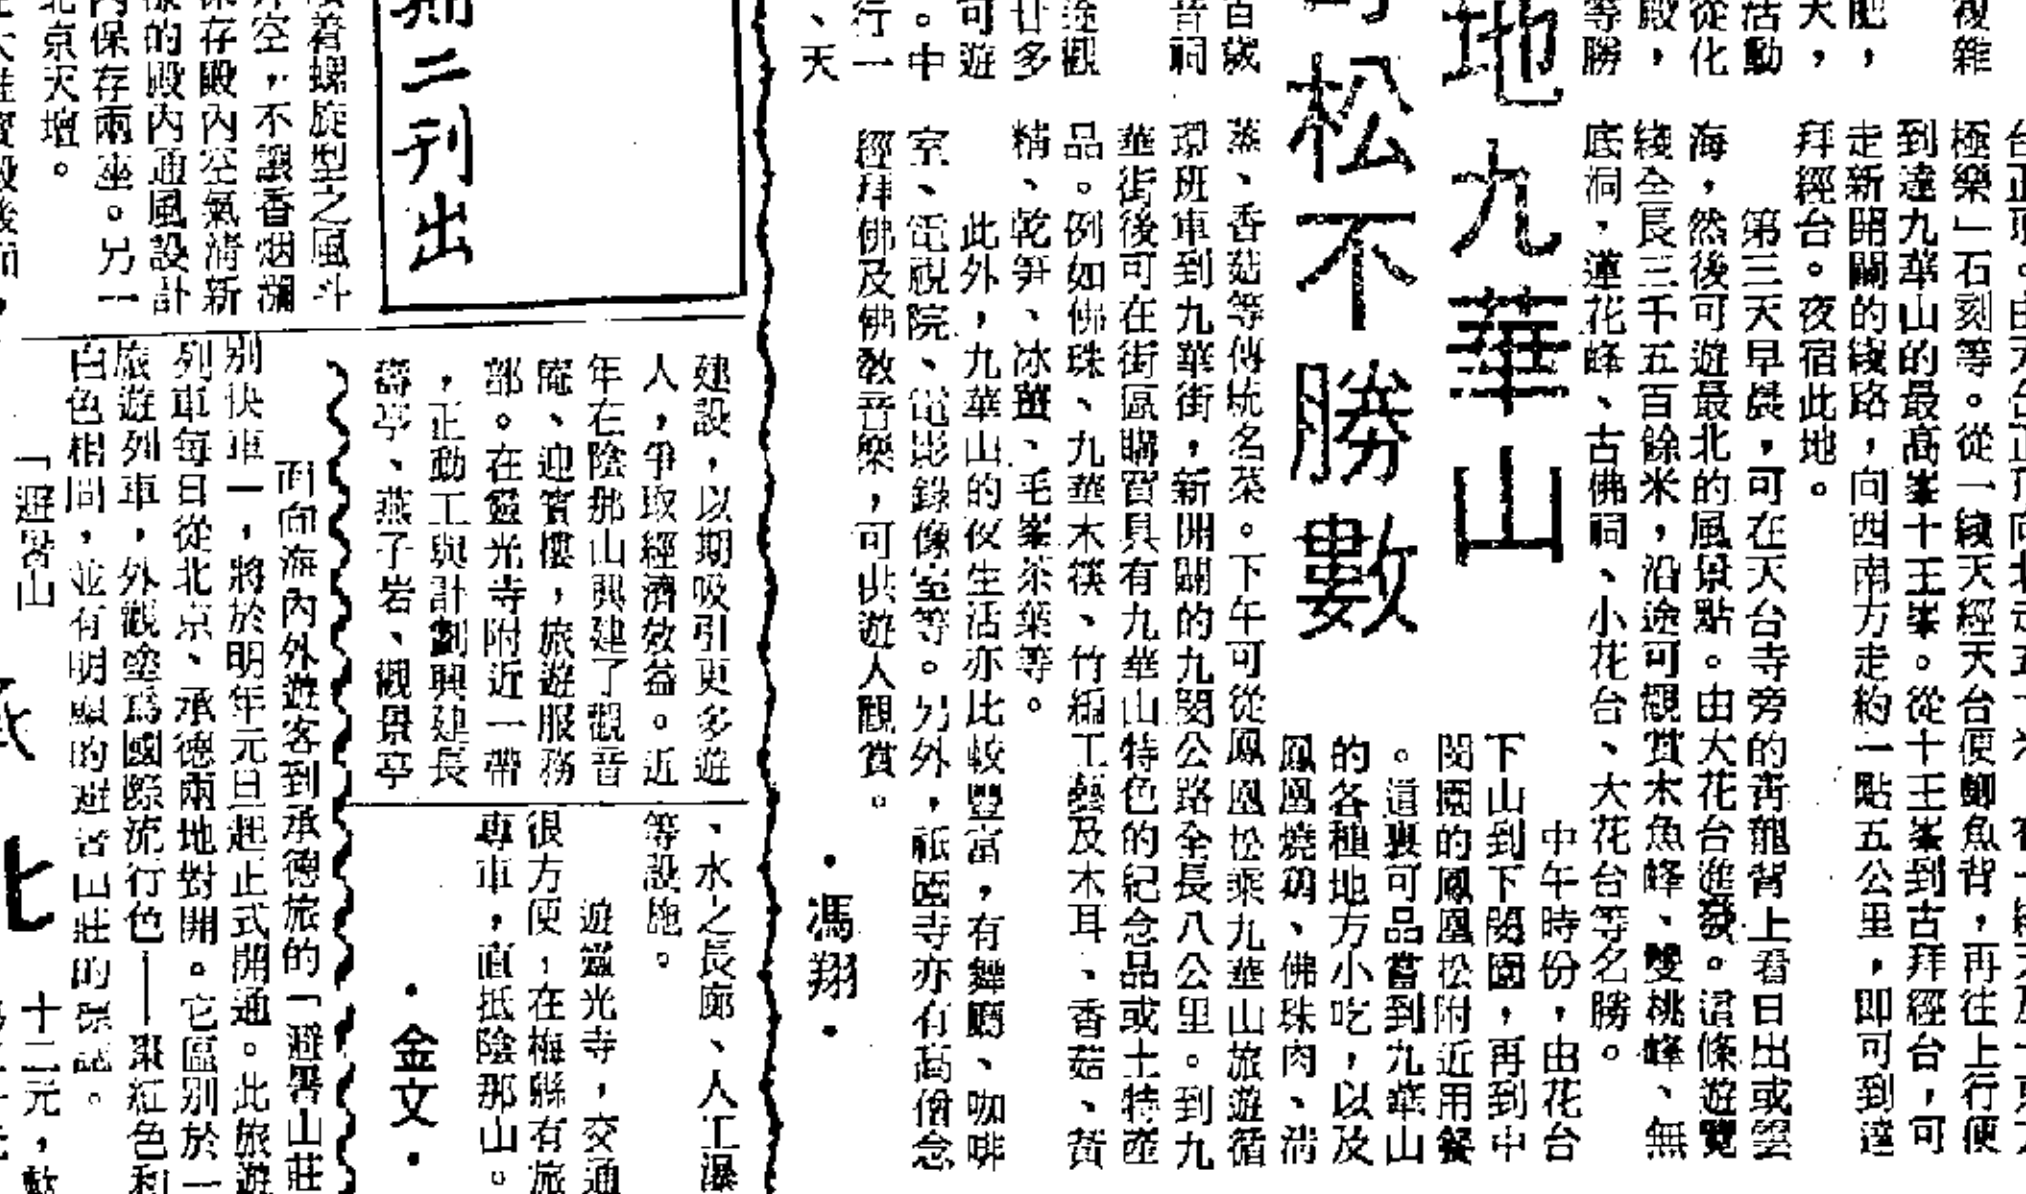 複雜
肥，
大，
活動
從化
殿，
等勝
地九華山
松不勝數
百歲
音祠
途觀
廿多
可遊
。中
行一
、天
極樂」石刻等。從一綫天經天台便鯽魚背，再往上行便
到達九華山的最高峯十王峯。從十王峯到古拜經台，可
走新開闢的綫路，向西南方走約一點五公里，即可到達
拜經台。夜宿此地。
第三天早晨，可在天台寺旁的青龍背上看日出或雲
海，然後可遊最北的風景點。由大花台進發。這條遊覽
綫全長三千五百餘米，沿途可觀賞木魚峰、雙桃峰、無
底洞、蓮花峰、古佛祠、小花台、大花台等名勝。
中午時份，由花台
下山到下閔園，再到中
閔園的鳳凰松附近用餐
。這裏可品嘗到九華山
的各種地方小吃，以及
鳳凰燒鷄、佛珠肉、清
蒸、香菇等傳統名菜。下午可從鳳凰松乘九華山旅遊循
環班車到九華街，新開闢的九閔公路全長八公里。到九
華街後可在街區購買具有九華山特色的紀念品或土特產
品。例如佛珠、九華木筷、竹編工藝及木耳、香菇、黃
精、乾笋、冰薑、毛峯茶葉等。
此外，九華山的夜生活亦比較豐富，有舞廳、咖啡
室、電視院、電影錄像室等。另外，祇園寺亦有高僧念
經拜佛及佛教音樂，可供遊人觀賞。
·馮翔·
期二刊出
接着螺旋型之風斗
空，不讓香烟瀰
保存殿內空氣清新
的殿內通風設計
內保存兩座。另一
北京天壇。
建設，以期吸引更多遊
人，爭取經濟效益。近
年在陰那山興建了觀音
庵、迎賓樓，旅遊服務
部。在靈光寺附近一帶
，正動工與計劃興建長
壽亭、燕子岩、觀景亭
、水之長廊、人工瀑
等設施。
遊靈光寺，交通
很方便，在梅縣有旅
專車，直抵陰那山。
·金文·
面向海內外遊客到承德旅的「避暑山莊
別快車一，將於明年元旦起正式開通。此旅遊
列車每日從北京、承德兩地對開。它區別於一
旅遊列車，外觀塗爲國際流行色——棗紅色和
白色相間，並有明顯的避暑山莊的標誌。
「避暑山
十二元，